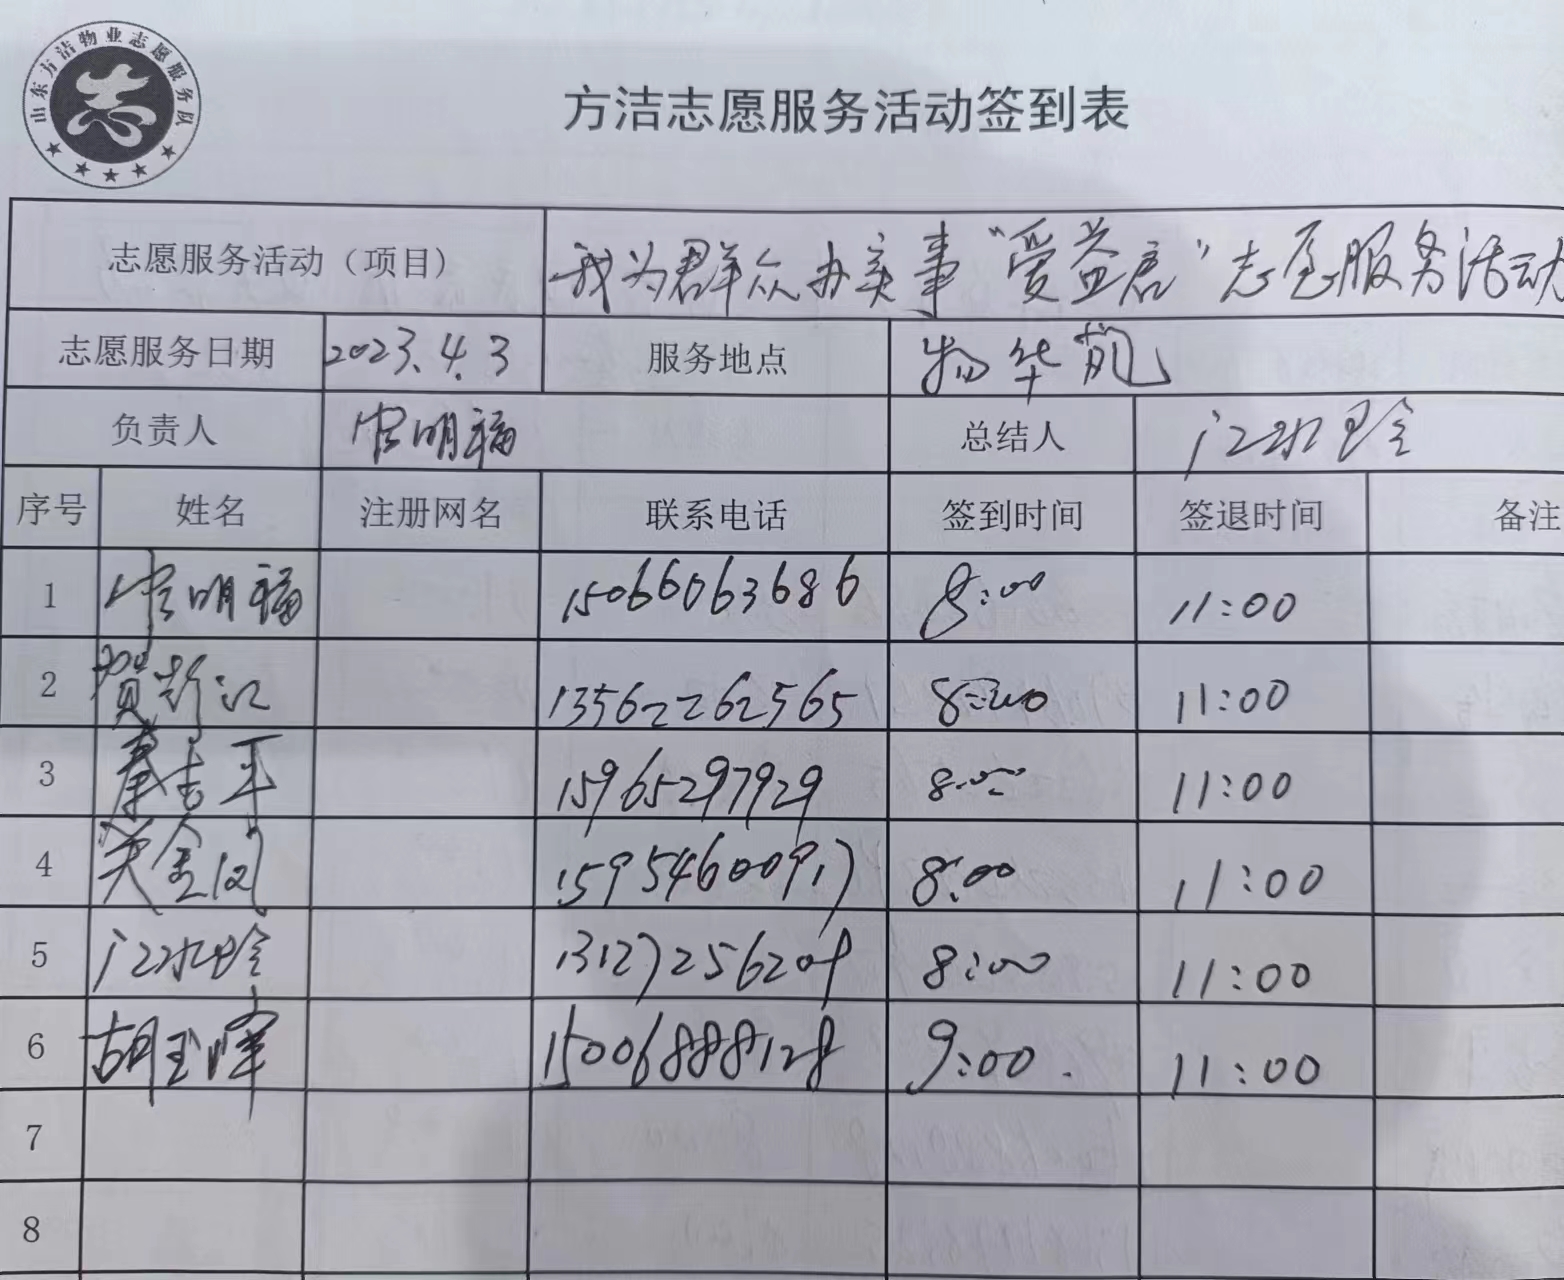 山东方洁物业志愿服务队
志
方洁志愿服务活动签到表
志愿服务活动（项目） 我为群众办实事“受益君”志愿服务活动
志愿服务日期 2023.4.3 服务地点 物华苑
负责人 明福 总结人 江水玲
序号 姓名 注册网名 联系电话 签到时间 签退时间 备注
1 明福 15066063686 8:00 11:00
2 贺 江 13562262565 8:00 11:00
3 秦吉平 15965297929 8:00 11:00
4 金 15954600917 8:00 11:00
5 江水玲 8:00 11:00
6 胡玉峰 15006888128 9:00 11:00
7
8